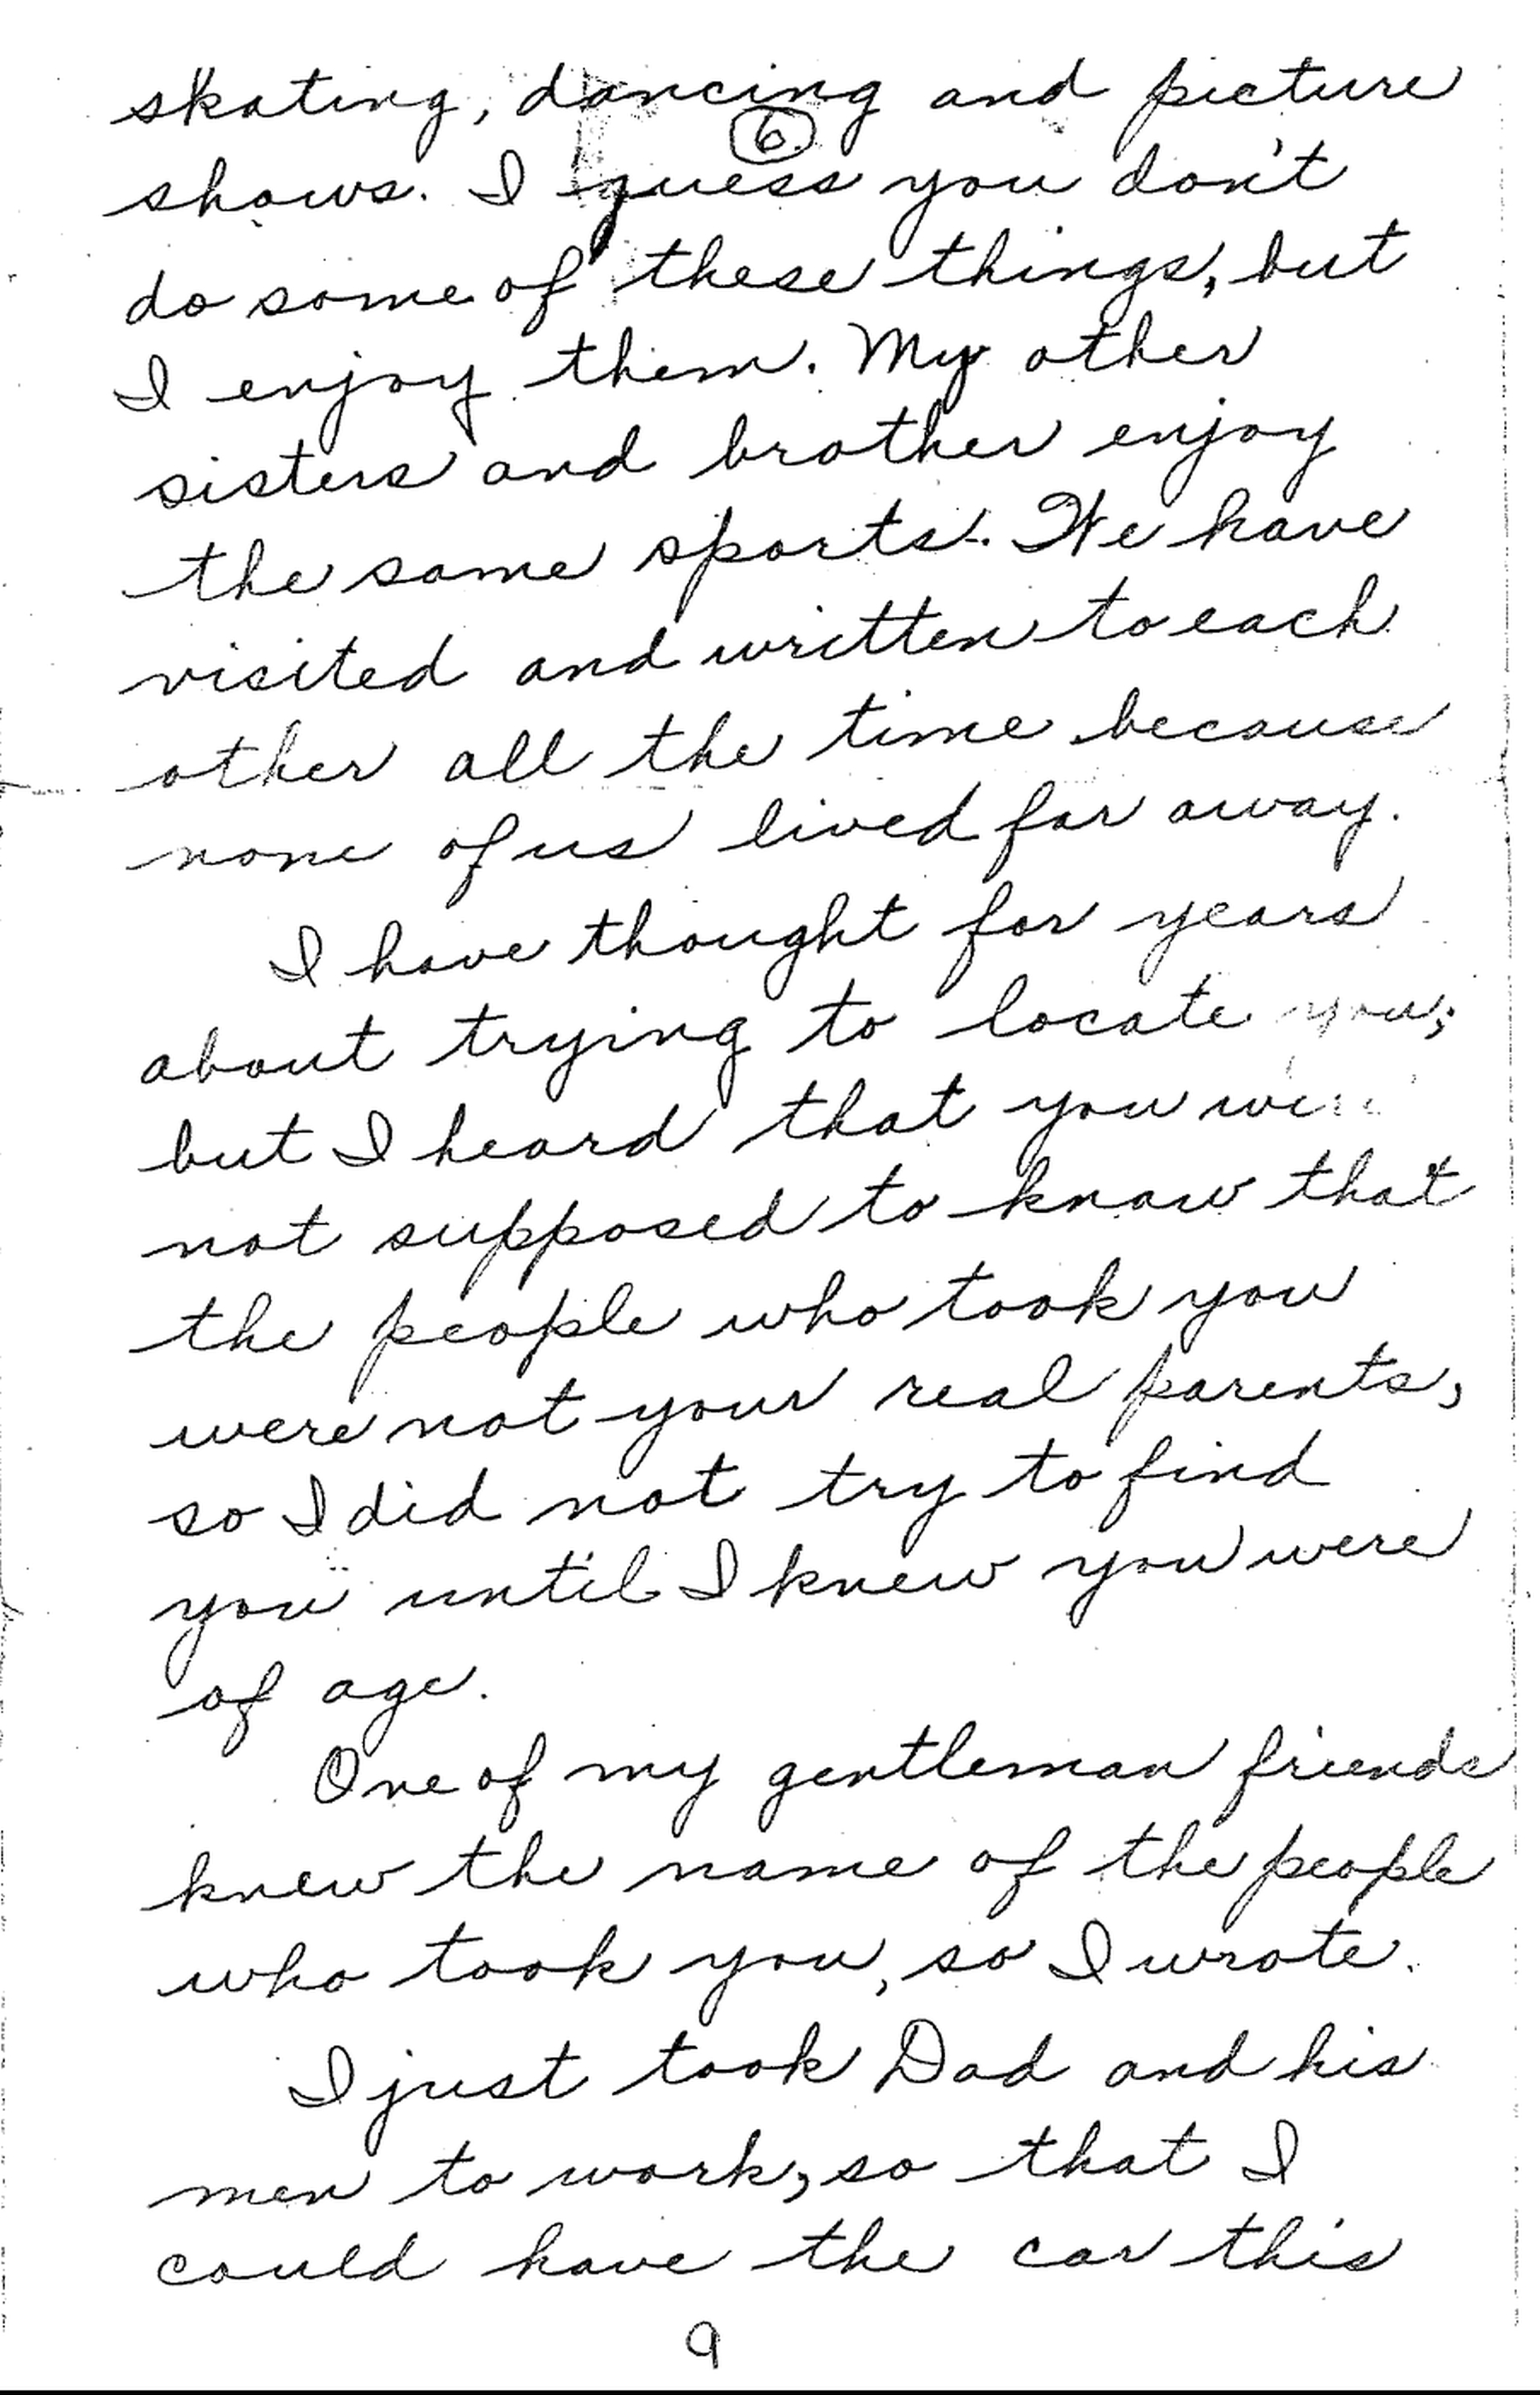 skating, dancing and picture
6.
shows. I guess you don't
do some of these things, but
I enjoy them. My other
sisters and brother enjoy
the same sports. We have
visited and written to each
other all the time because
none of us lived far away.
I have thought for years
about trying to locate you;
but I heard that you were
not supposed to know that
the people who took you
were not your real parents,
so I did not try to find
you until I knew you were
of age.
One of my gentleman friends
knew the name of the people
who took you, so I wrote.
I just took Dad and his
men to work, so that I
could have the car this
9